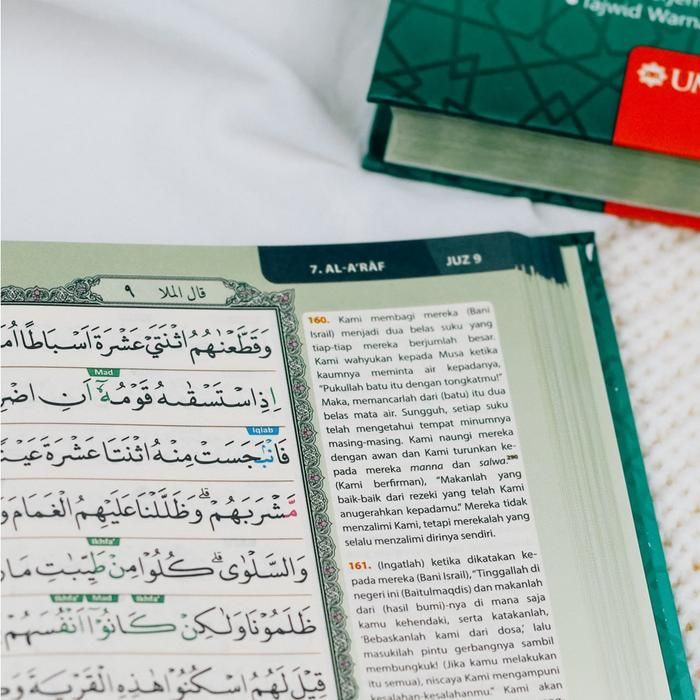 Tajwid Warna
7. AL-A'RÀF
JUZ 9
قال الملا ٩
وَقَطَّعْنٰهُمُ اثْنَتَيْ عَشْرَةَ اَسْبَاطًا
Mad
اِذِ اسْتَسْقٰىهُ قَوْمُهٗٓ اَنِ
Iqlab
فَانْۢبَجَسَتْ مِنْهُ اثْنَتَا عَشْرَةَ
مَّشْرَبَهُمْۗ وَظَلَّلْنَا عَلَيْهِمُ الْغَمَامَ
Ikhfa'
وَالسَّلْوٰىۗ كُلُوْا مِنْ طَيِّبٰتِ
Ikhfa' Mad Ikhfa'
ظَلَمُوْنَا وَلٰكِنْ كَانُوْٓا اَنْفُسَهُمْ
قِيْلَ لَهُمُ اسْكُنُوْا هٰذِهِ الْقَرْيَةَ
160. Kami membagi mereka (Bani
Israil) menjadi dua belas suku yang
tiap-tiap mereka berjumlah besar.
Kami wahyukan kepada Musa ketika
kaumnya meminta air kepadanya,
"Pukullah batu itu dengan tongkatmu!"
Maka, memancarlah dari (batu) itu dua
belas mata air. Sungguh, setiap suku
telah mengetahui tempat minumnya
masing-masing. Kami naungi mereka
dengan awan dan Kami turunkan ke-
pada mereka manna dan salwa.
(Kami berfirman), "Makanlah yang
baik-baik dari rezeki yang telah Kami
anugerahkan kepadamu." Mereka tidak
menzalimi Kami, tetapi merekalah yang
selalu menzalimi dirinya sendiri.
161. (Ingatlah) ketika dikatakan ke-
pada mereka (Bani Israil), "Tinggallah di
negeri ini (Baitulmaqdis) dan makanlah
dari (hasil bumi)-nya di mana saja
kamu kehendaki, serta katakanlah,
'Bebaskanlah kami dari dosa,' lalu
masukilah pintu gerbangnya sambil
membungkuk! (Jika kamu melakukan
itu semua), niscaya Kami mengampuni
kesalahan-kesalahanmu." Kami akan